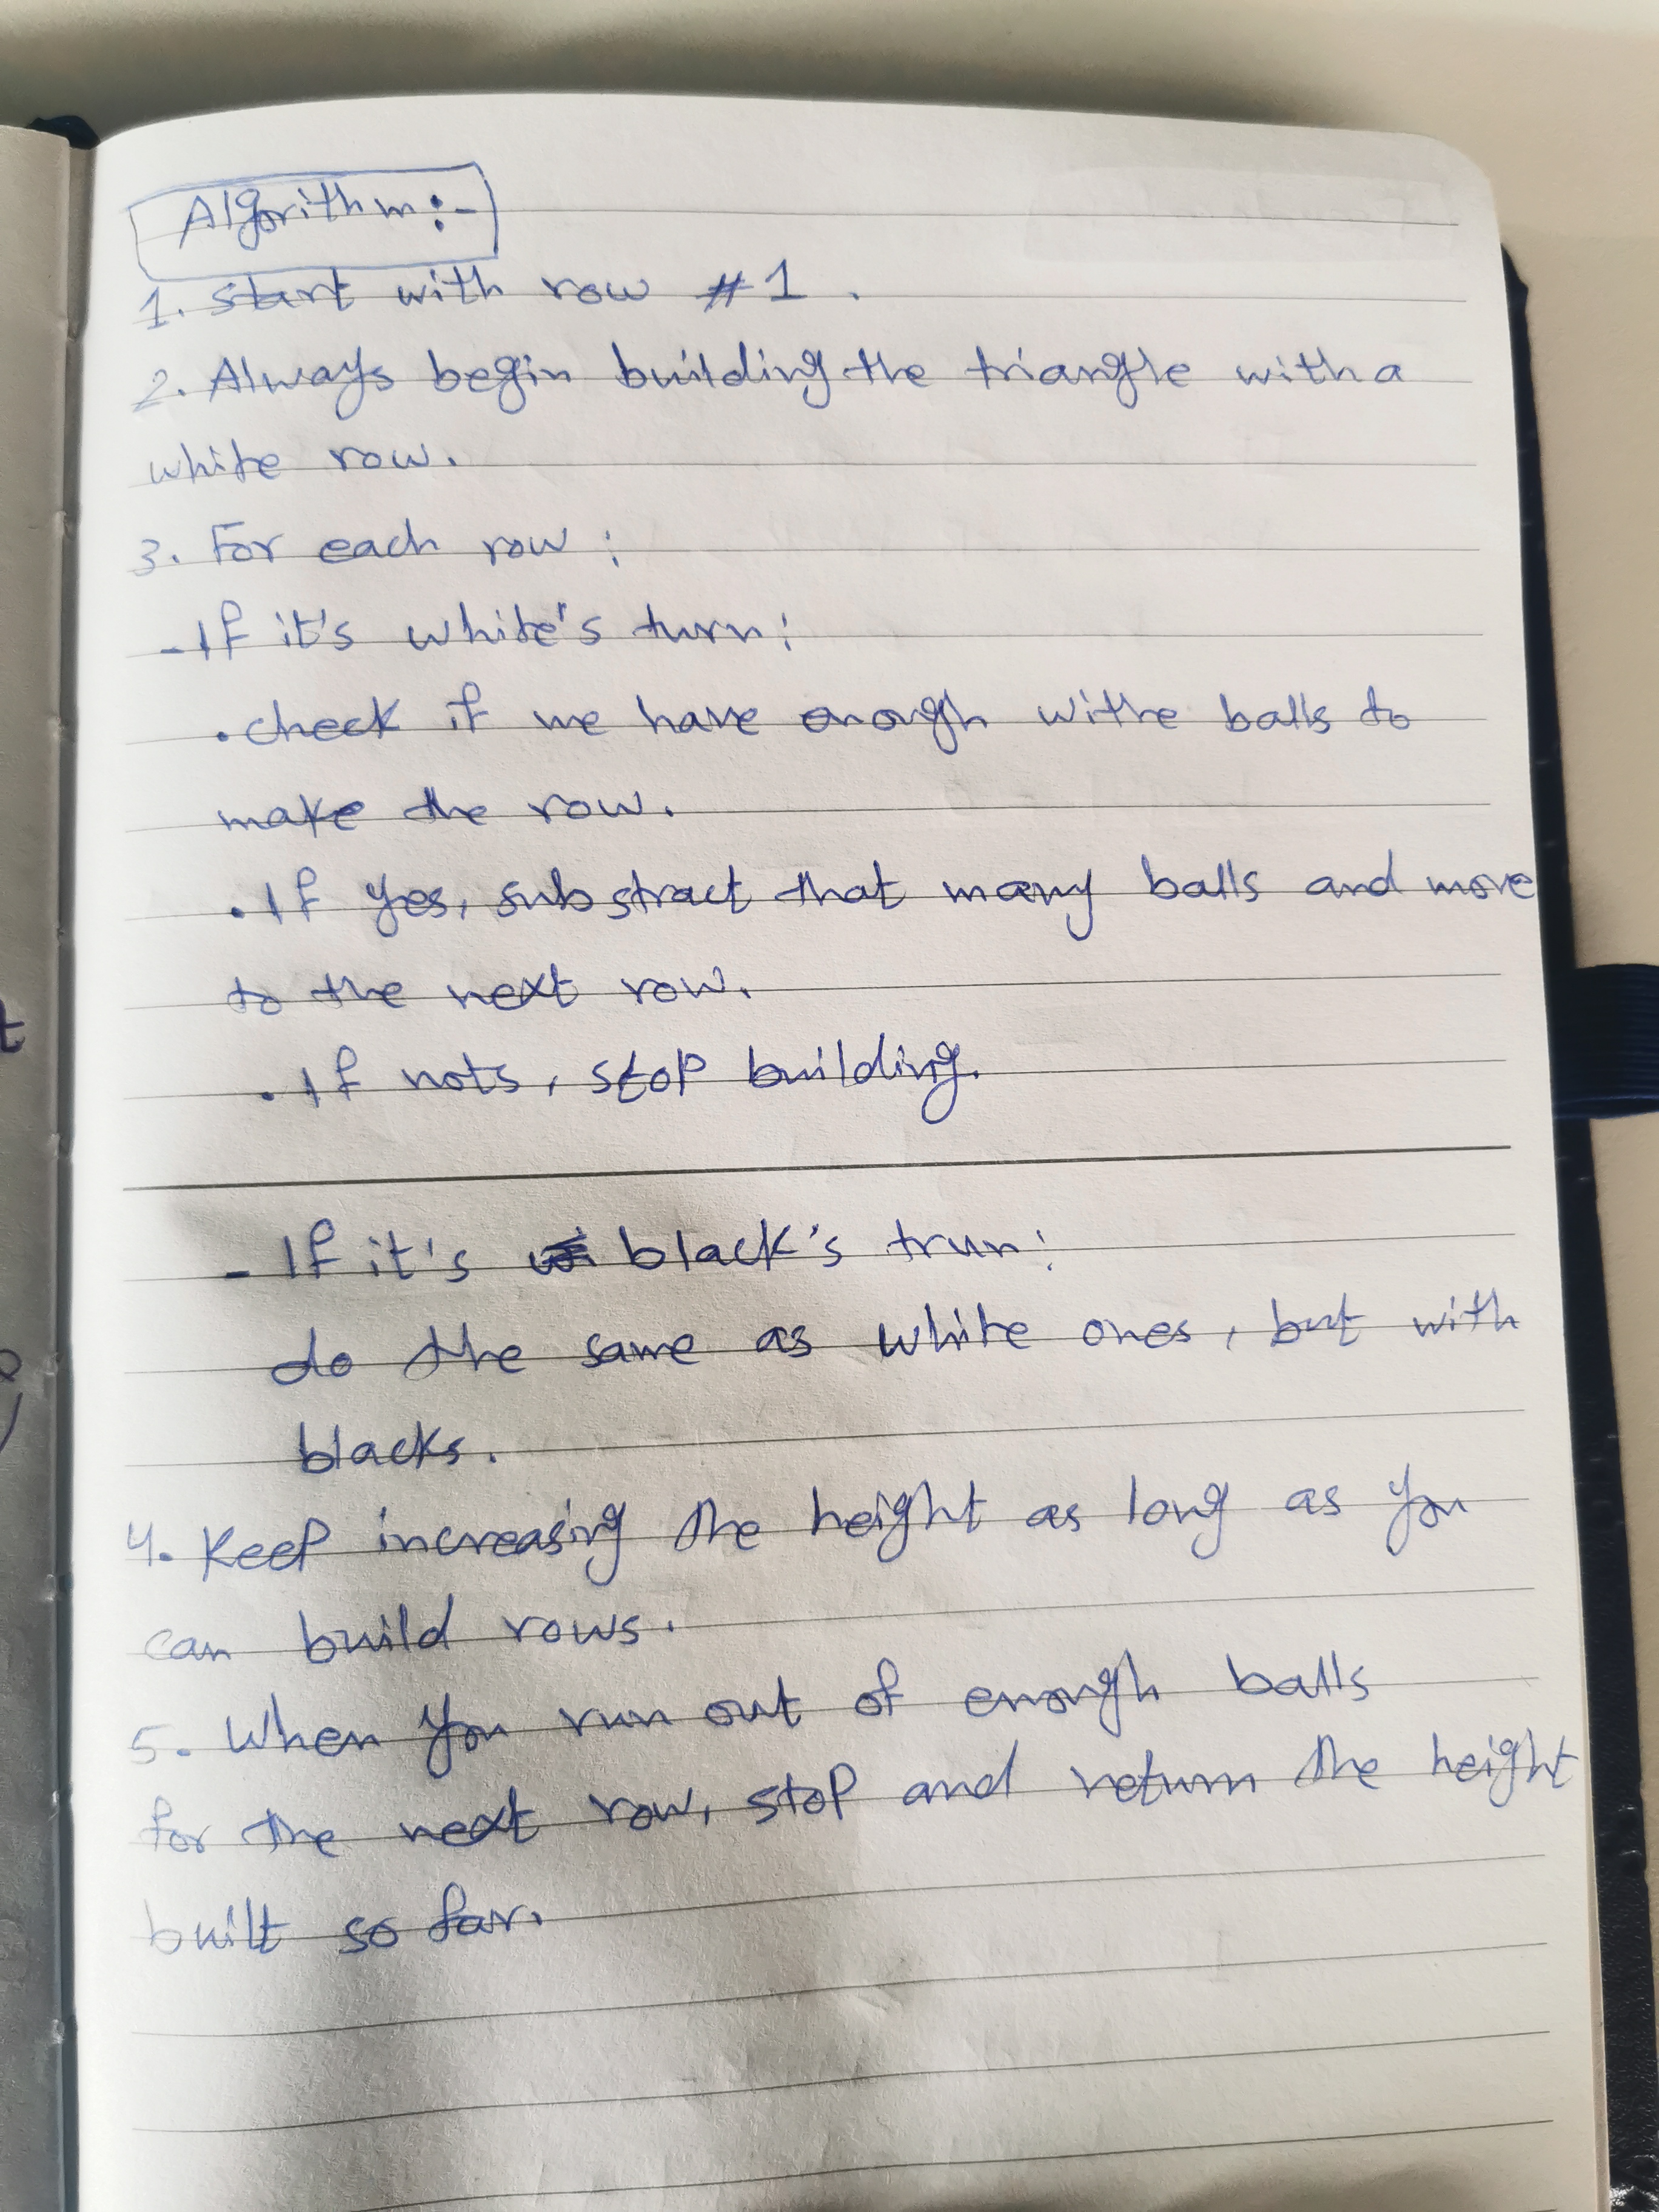 Algorithm:-
1. Start with row #1.
2. Always begin building the triangle with a
white row.
3. For each row:
- If it's white's turn:
. check if we have enough withe balls to
make the row.
. If yes, substract that many balls and move
to the next row.
. If nots, stop building.
- If it's black's trun:
do the same as white ones, but with
blacks.
4. Keep increasing the height as long as you
can build rows.
5. When you run out of enough balls
for the next row, stop and return the height
built so far.